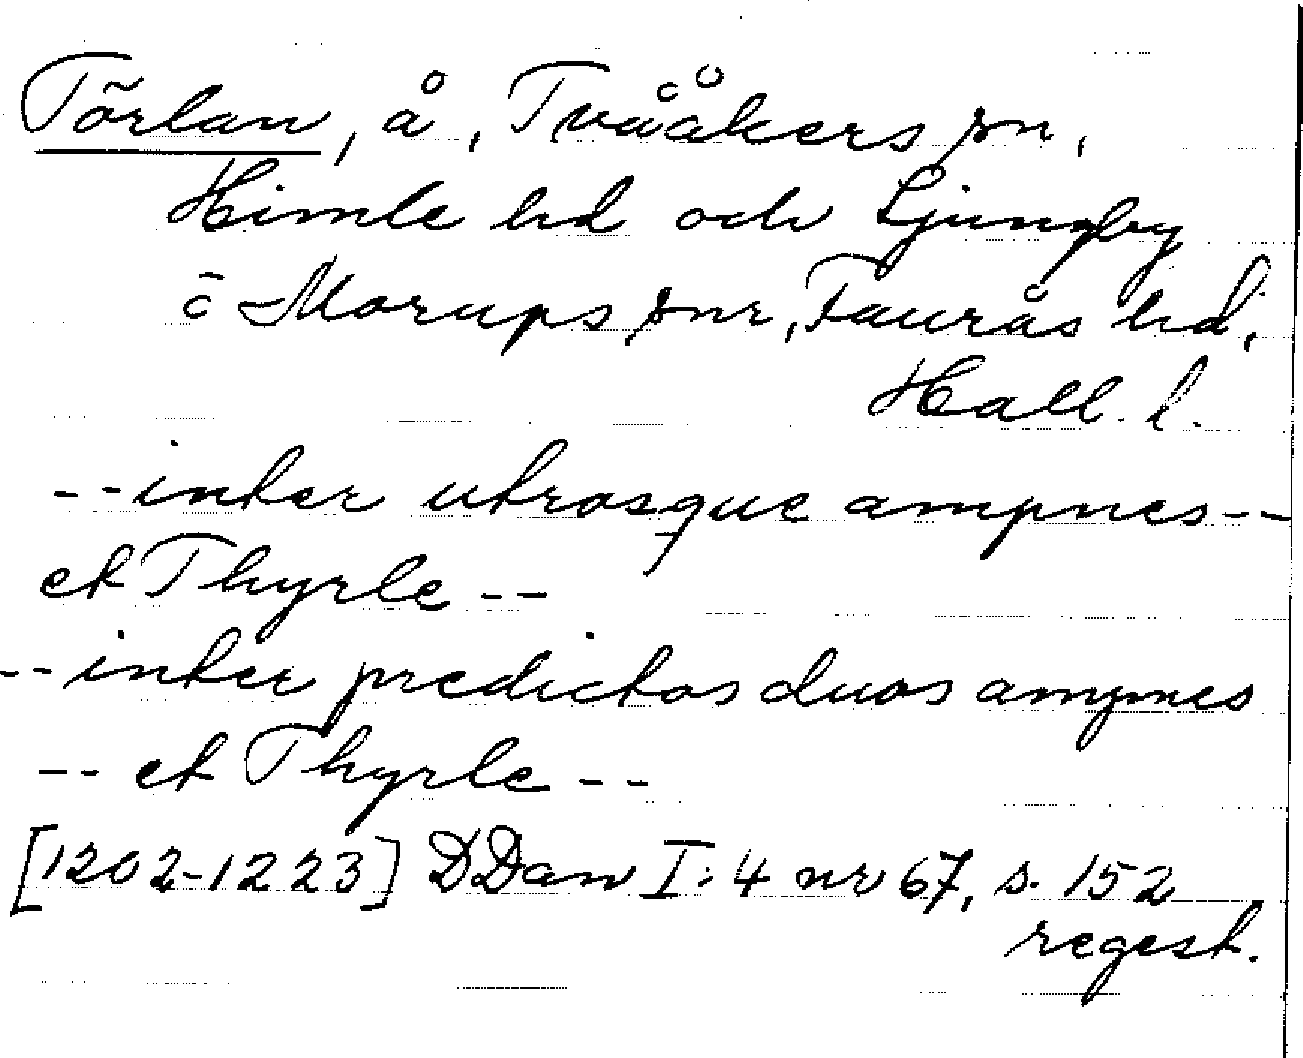 Törlan, å, Tvååkers sn,
Himle hd och Ljungby
o Morups snr, Faurås hd,
Hall. l.
-- inter utrosque ampnes --
et Thyrle --
-- inter predictos duos ampnes
-- et Thyrle --
[1202-1223] DDan I:4 nr 67, s. 152
regest.